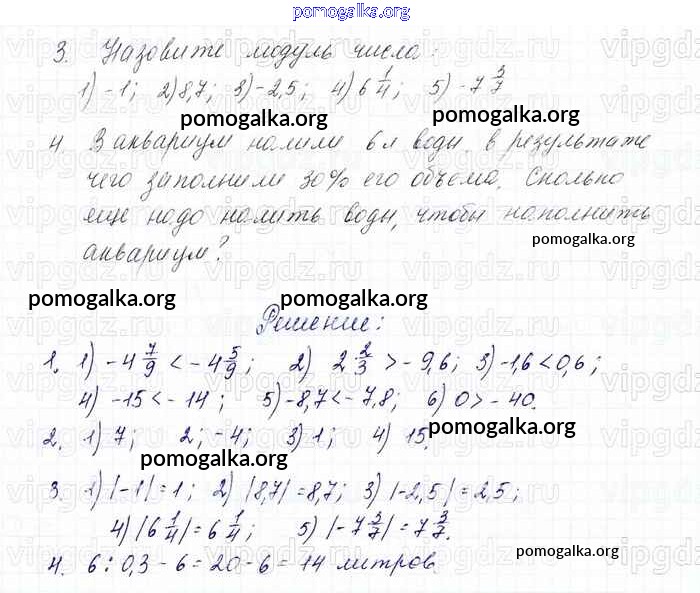 pomogalka.org
3. Назовите модуль числа:
1) -1; 2) 8,7; 3) -2,5; 4) 6 1/4; 5) -7 3/7
pomogalka.org pomogalka.org
4 В аквариум налили 6 л воды, в результате
чего заполнили 30% его объема. Сколько
еще надо налить воды, чтобы наполнить
pomogalka.org
аквариум?
pomogalka.org pomogalka.org
Решение:
1. 1) -4 7/9 < -4 5/9; 2) 2 2/3 > -9,6; 3) -1,6 < 0,6;
4) -15 < -14; 5) -8,7 < -7,8; 6) 0 > -40.
2. 1) 7; 2; -4; 3) 1; 4) 15.
pomogalka.org
pomogalka.org
3. 1) |-1| = 1; 2) |8,7| = 8,7; 3) |-2,5| = 2,5;
4) |6 1/4| = 6 1/4; 5) |-7 3/7| = 7 3/7.
pomogalka.org
4. 6 : 0,3 - 6 = 20 - 6 = 14 литров